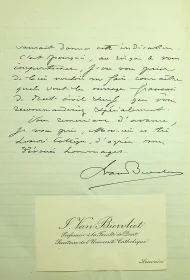 donner cette indication.
C'est pourquoi, au risque de vous
importuner, j'ose vous prier
de bien vouloir me faire connaître
quel est le ouvrage français
de droit civil que vous
recommandez spécialement.
Vous remerciant d'avance,
je vous prie, Monsieur et
Collègue, d'agréer mes
hommages
J. Van Biervliet
Professeur à la Faculté de Droit
Secrétaire de l'Université Catholique
Louvain